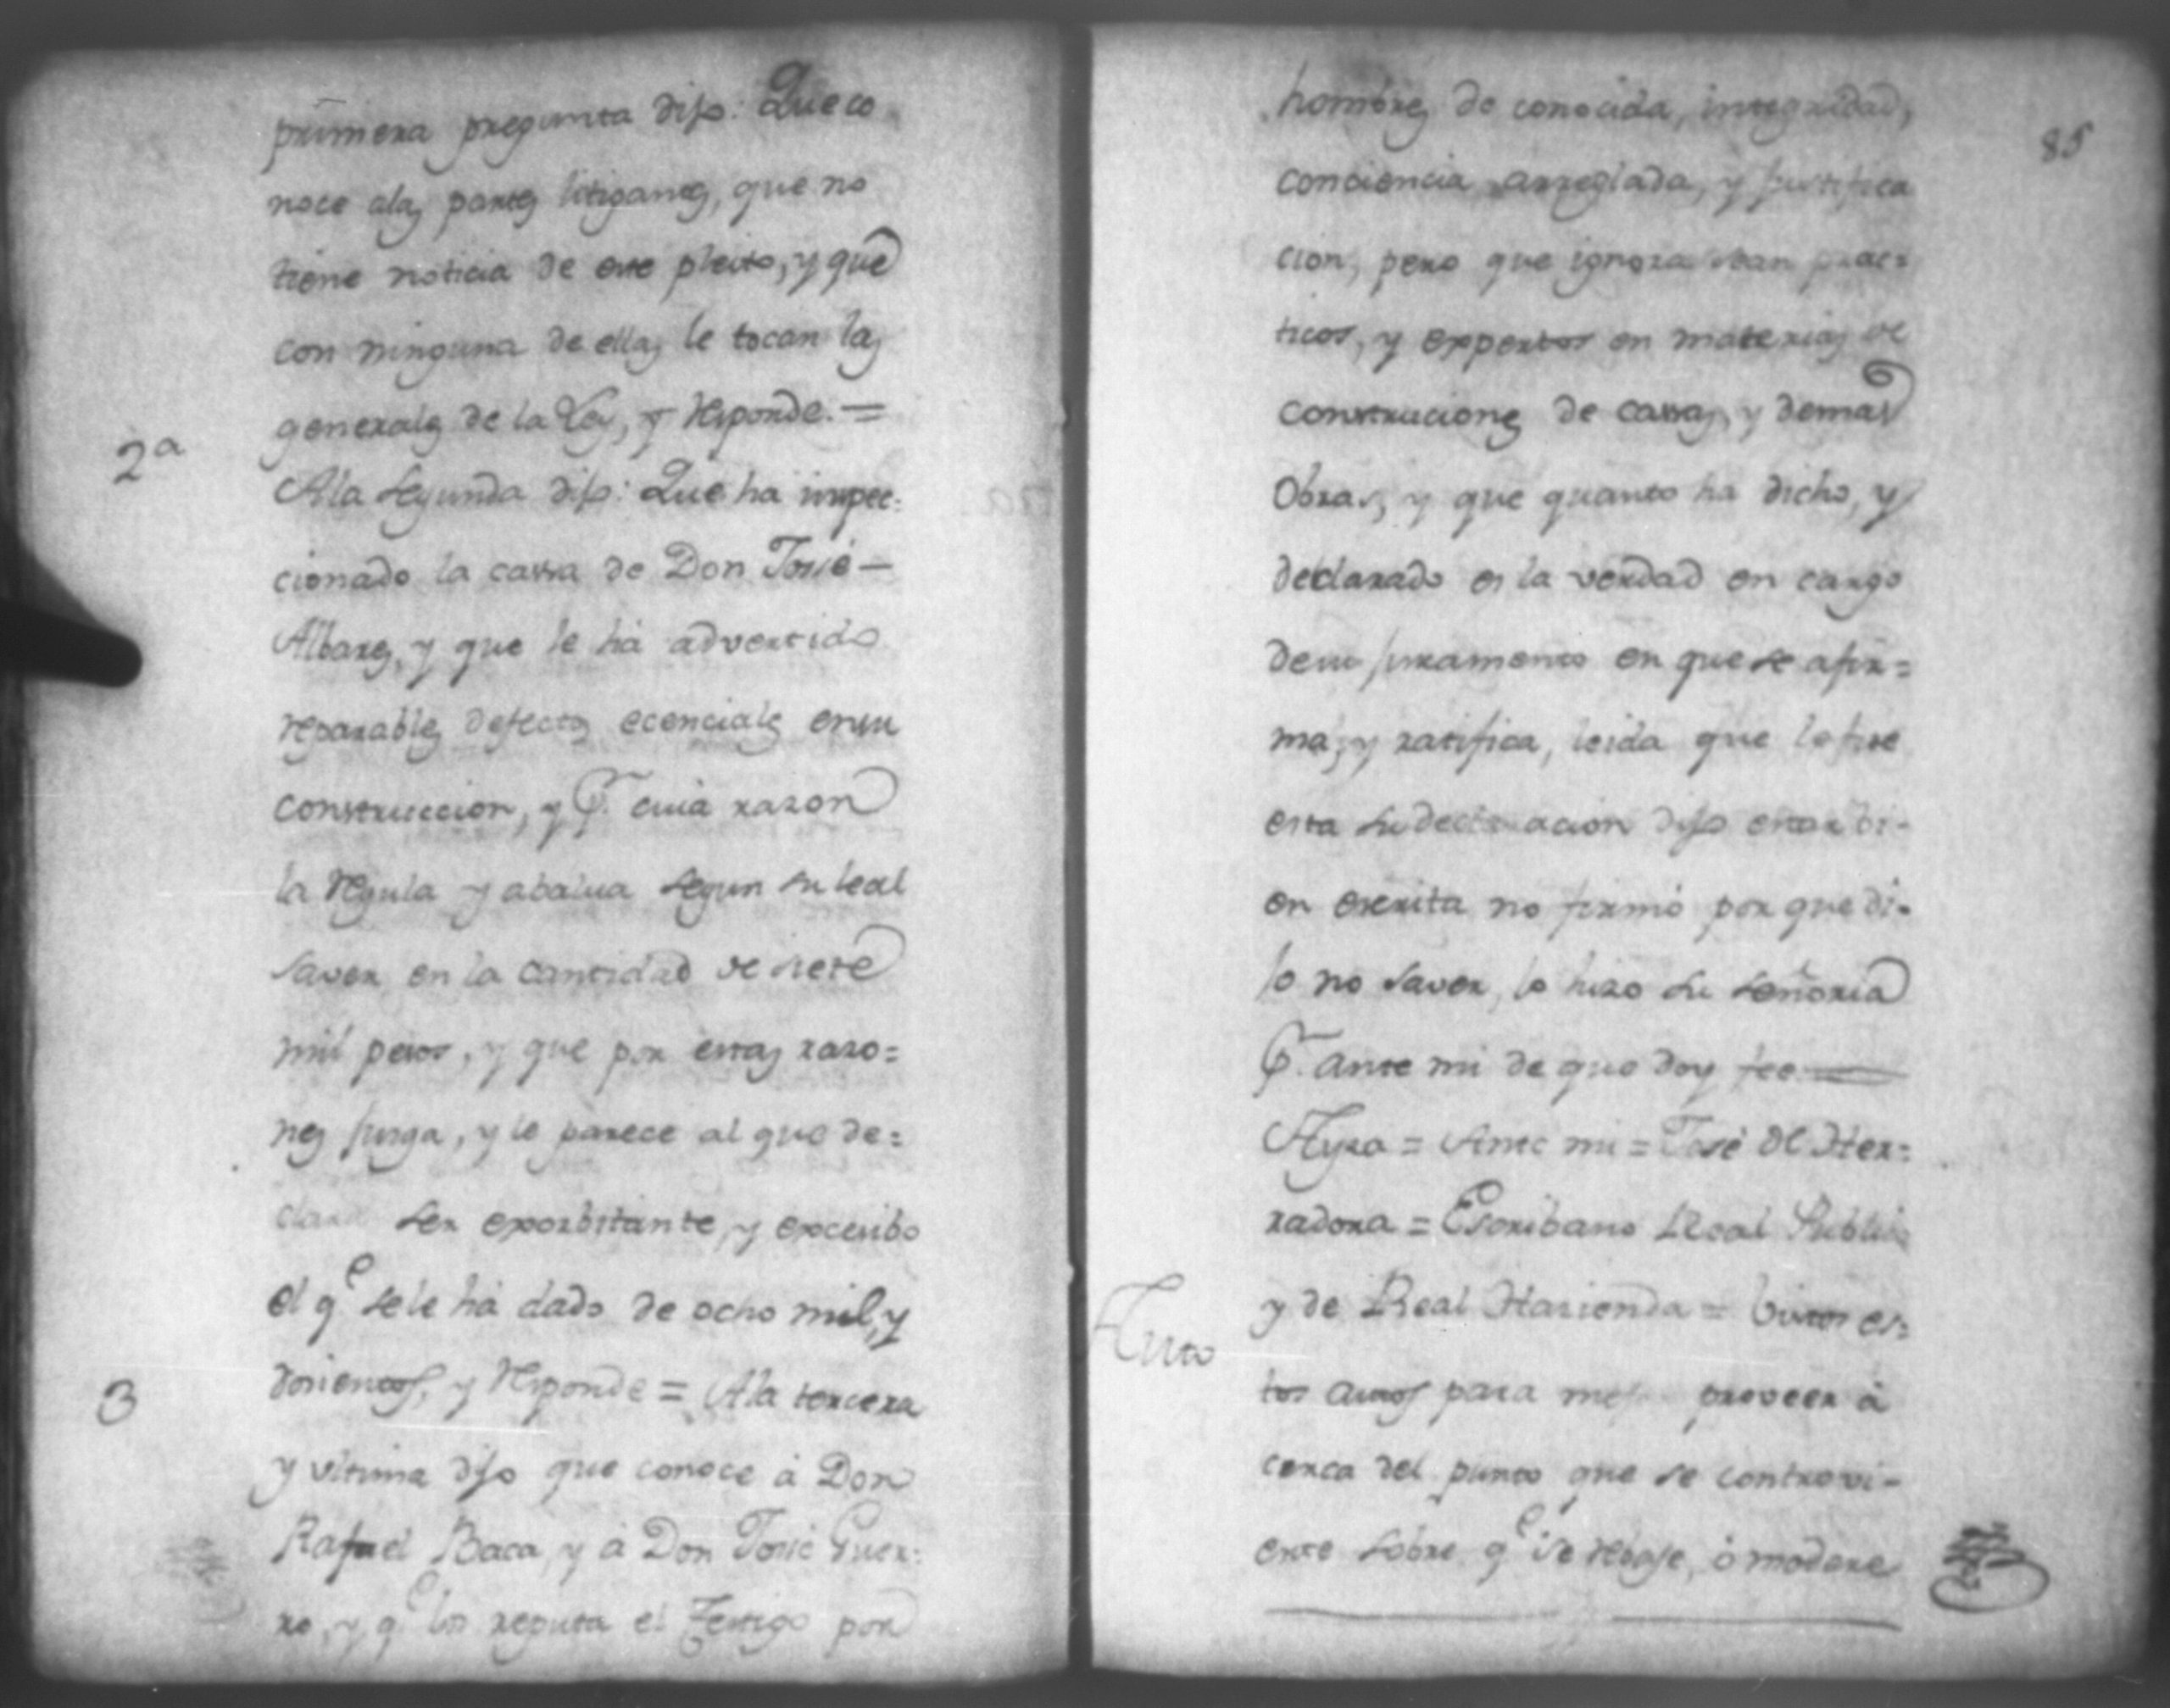 primera pregunta dijo: Que co
noce alas partes litiganes, que no
tiene noticia de este pleito, y que
con ninguna de ellas le tocan las
generales de la Ley, y Responde. =
2a
Ala segunda dijo: Que ha inspec-
cionado la cassa de Don José -
Albares, y que le ha advertido
reparables defectos ecenciales ensu
construccion, y Pr. cuia razon
la Regula y abalua segun su leal
saver en la cantidad de siete
mil pesos, y que por estas razo=
nes jusga, y le parece al que de=
clara ser exorbitante, y excesibo
el qe sele ha dado de ocho mil, y
dosientos, y Responde = Ala tercera
3
y vltima dijo que conoce á Don
Rafael Baca, y á Don José Guer-
ro, y qe los reputa el Testigo por
85
hombres de conocida, integridad,
conciencia arreglada, y justifica
cion, pero que ignora sean prac=
ticos, y expertos en materias de
construciones de cassas, y demas
Obras, y que quanto ha dicho, y
declarado es la verdad en cargo
desu juramento en que se afir=
ma, y ratifica, leida que le fue
esta su declaracion dijo estar bi-
en escrita no firmó por que di-
jo no saver, lo hizo su señoria
Pr. ante mi de que doy fee =
Ayza = Ante mi = José de Her=
radora = Escribano Real Publico
y de Real Hazienda = Vistos es=
Auto
tos autos para proveer á
cerca del punto que se controvi-
erte sobre qe se rebaje, ó modere